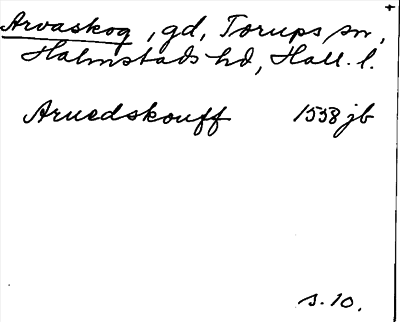 Arvaskog, gd, Torups sn,
Halmstads hd, Hall. l.
Aruedskouff 1558 jb
s. 10.